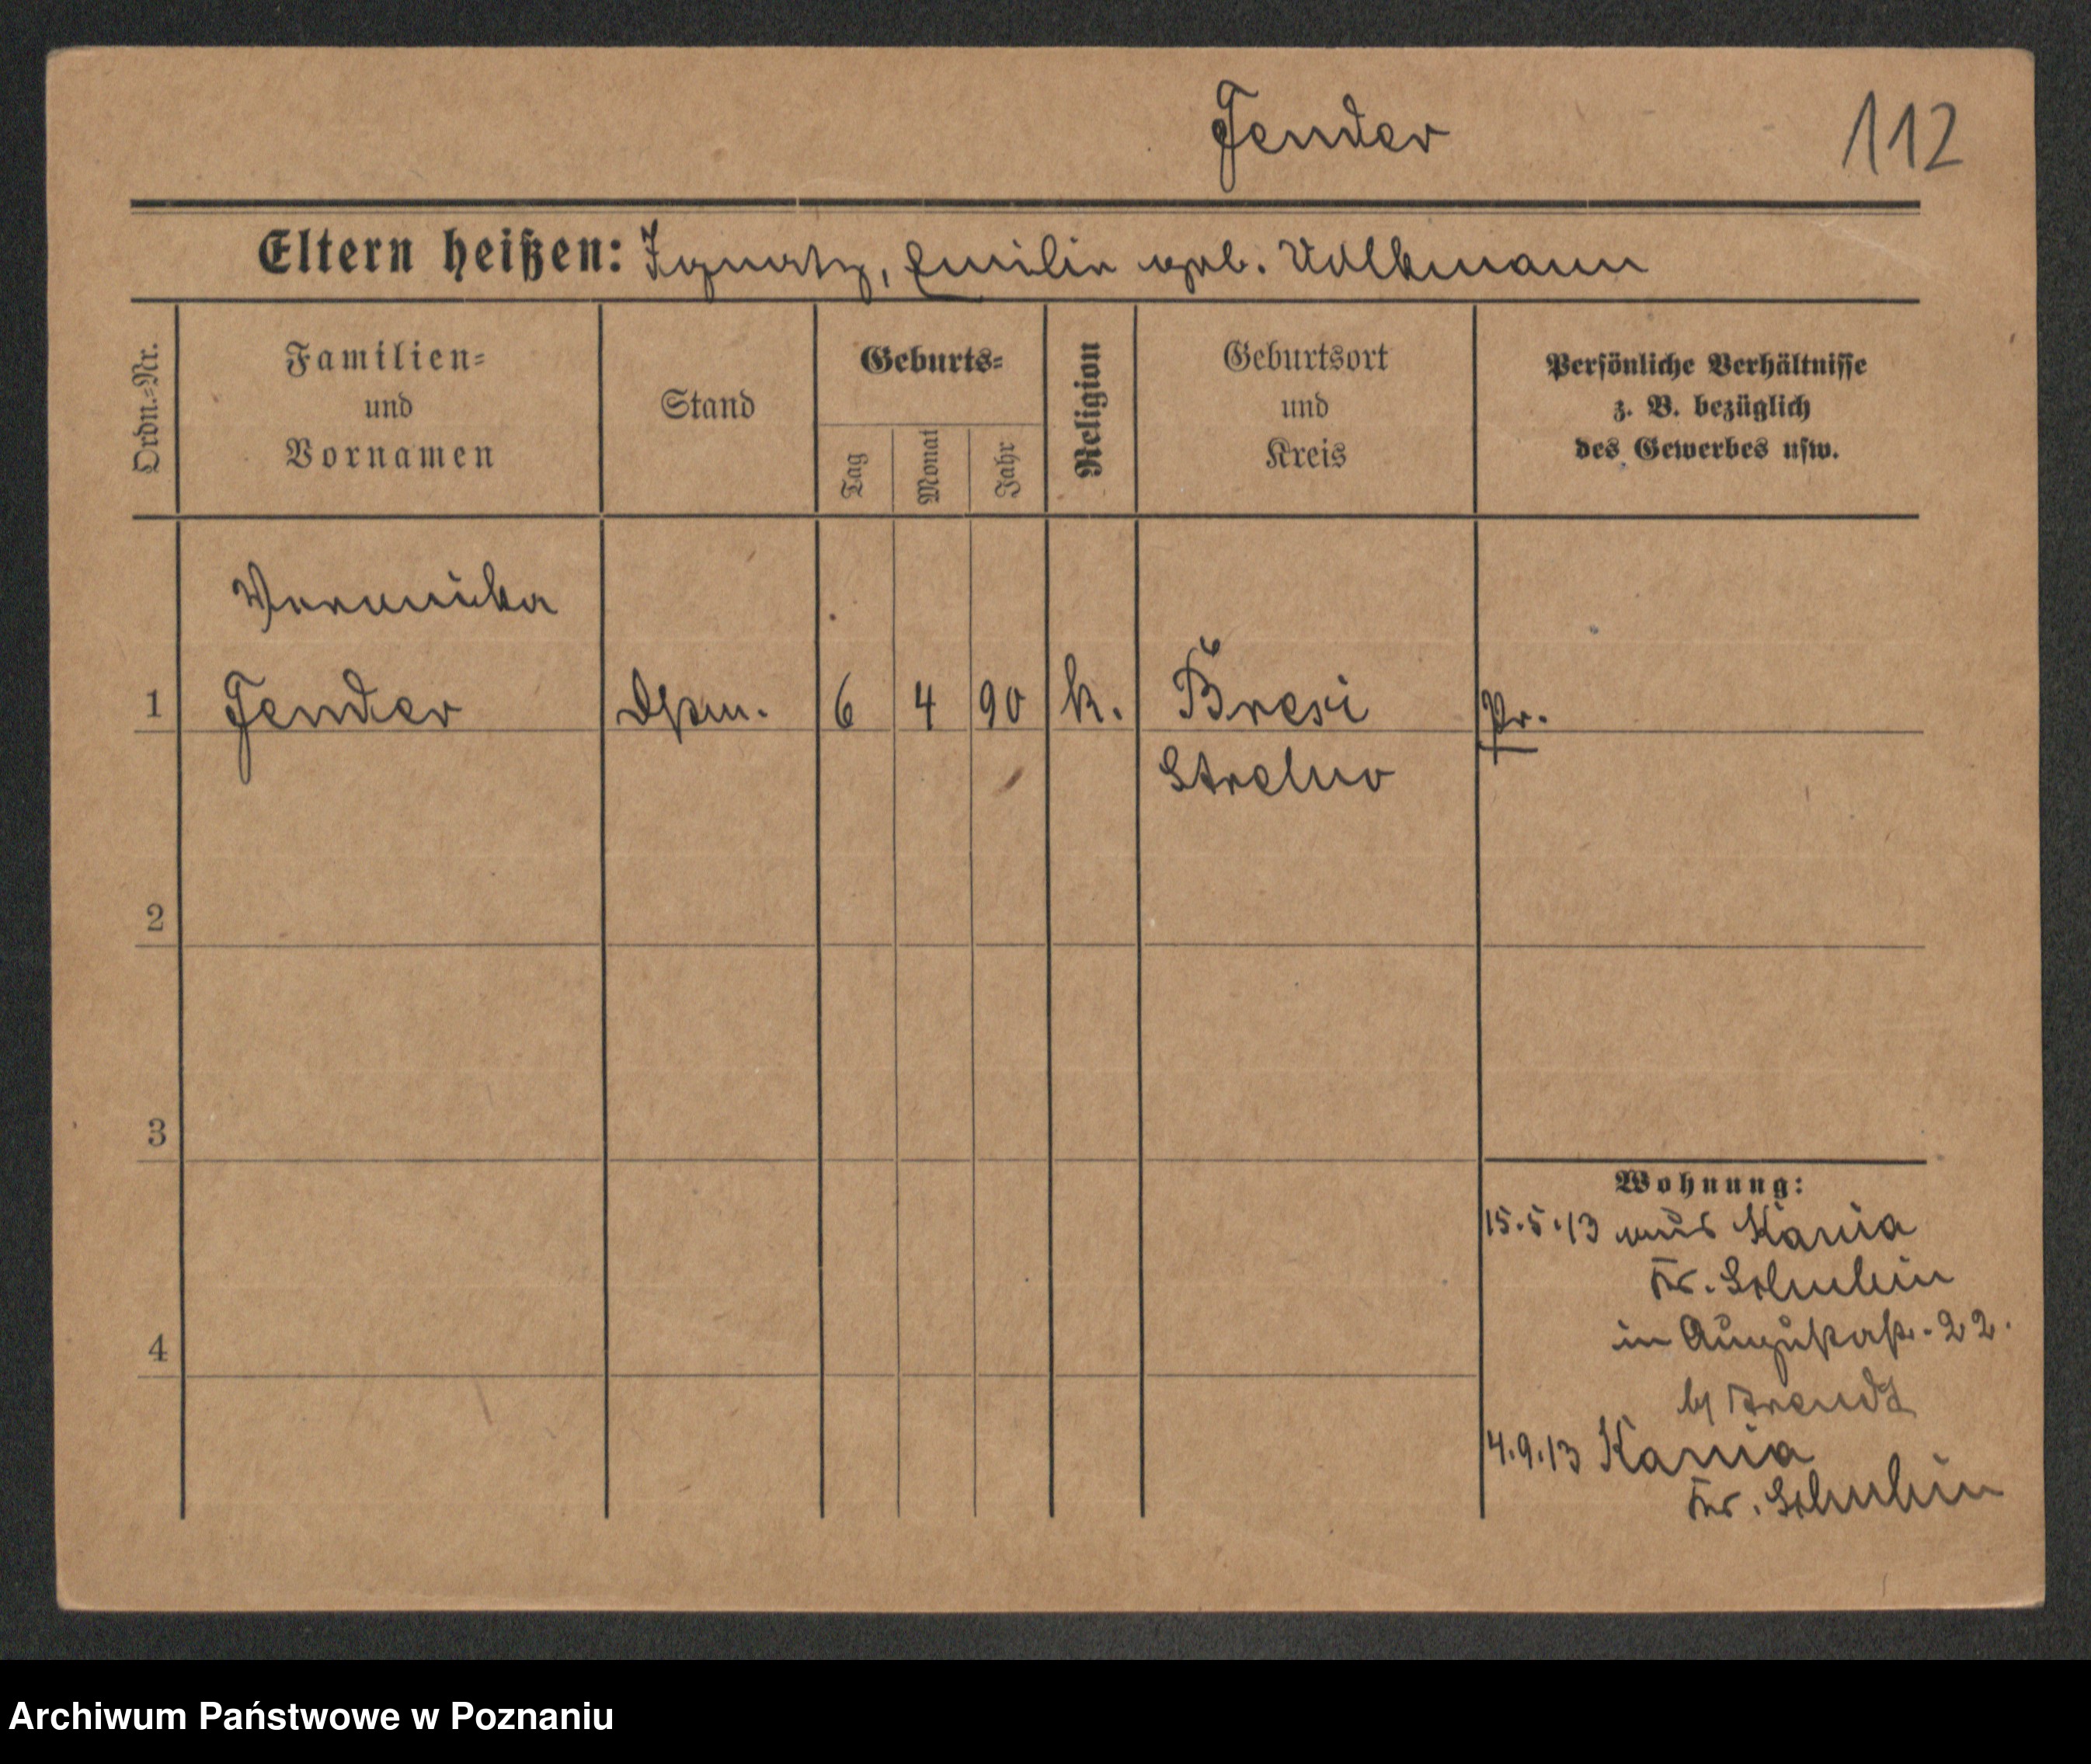 Fender
112
Eltern heißen: Ignatz, Emilie geb. Volkmann
Ordn.-Nr.
Familien-
und
Vornamen
Stand
Geburts-
Tag
Monat
Jahr
Religion
Geburtsort
und
Kreis
Persönliche Verhältnisse
z. B. bezüglich
des Gewerbes usw.
Veronika
1 Fender 6 4 90 k. Pr.
Strelno
2
3
4
Wohnung:
15.5.13 aus Kania
Kr. Schubin
in Augustastr. 22.
b/ Arendt
4.9.13 Kania
Kr. Schubin
Archiwum Państwowe w Poznaniu